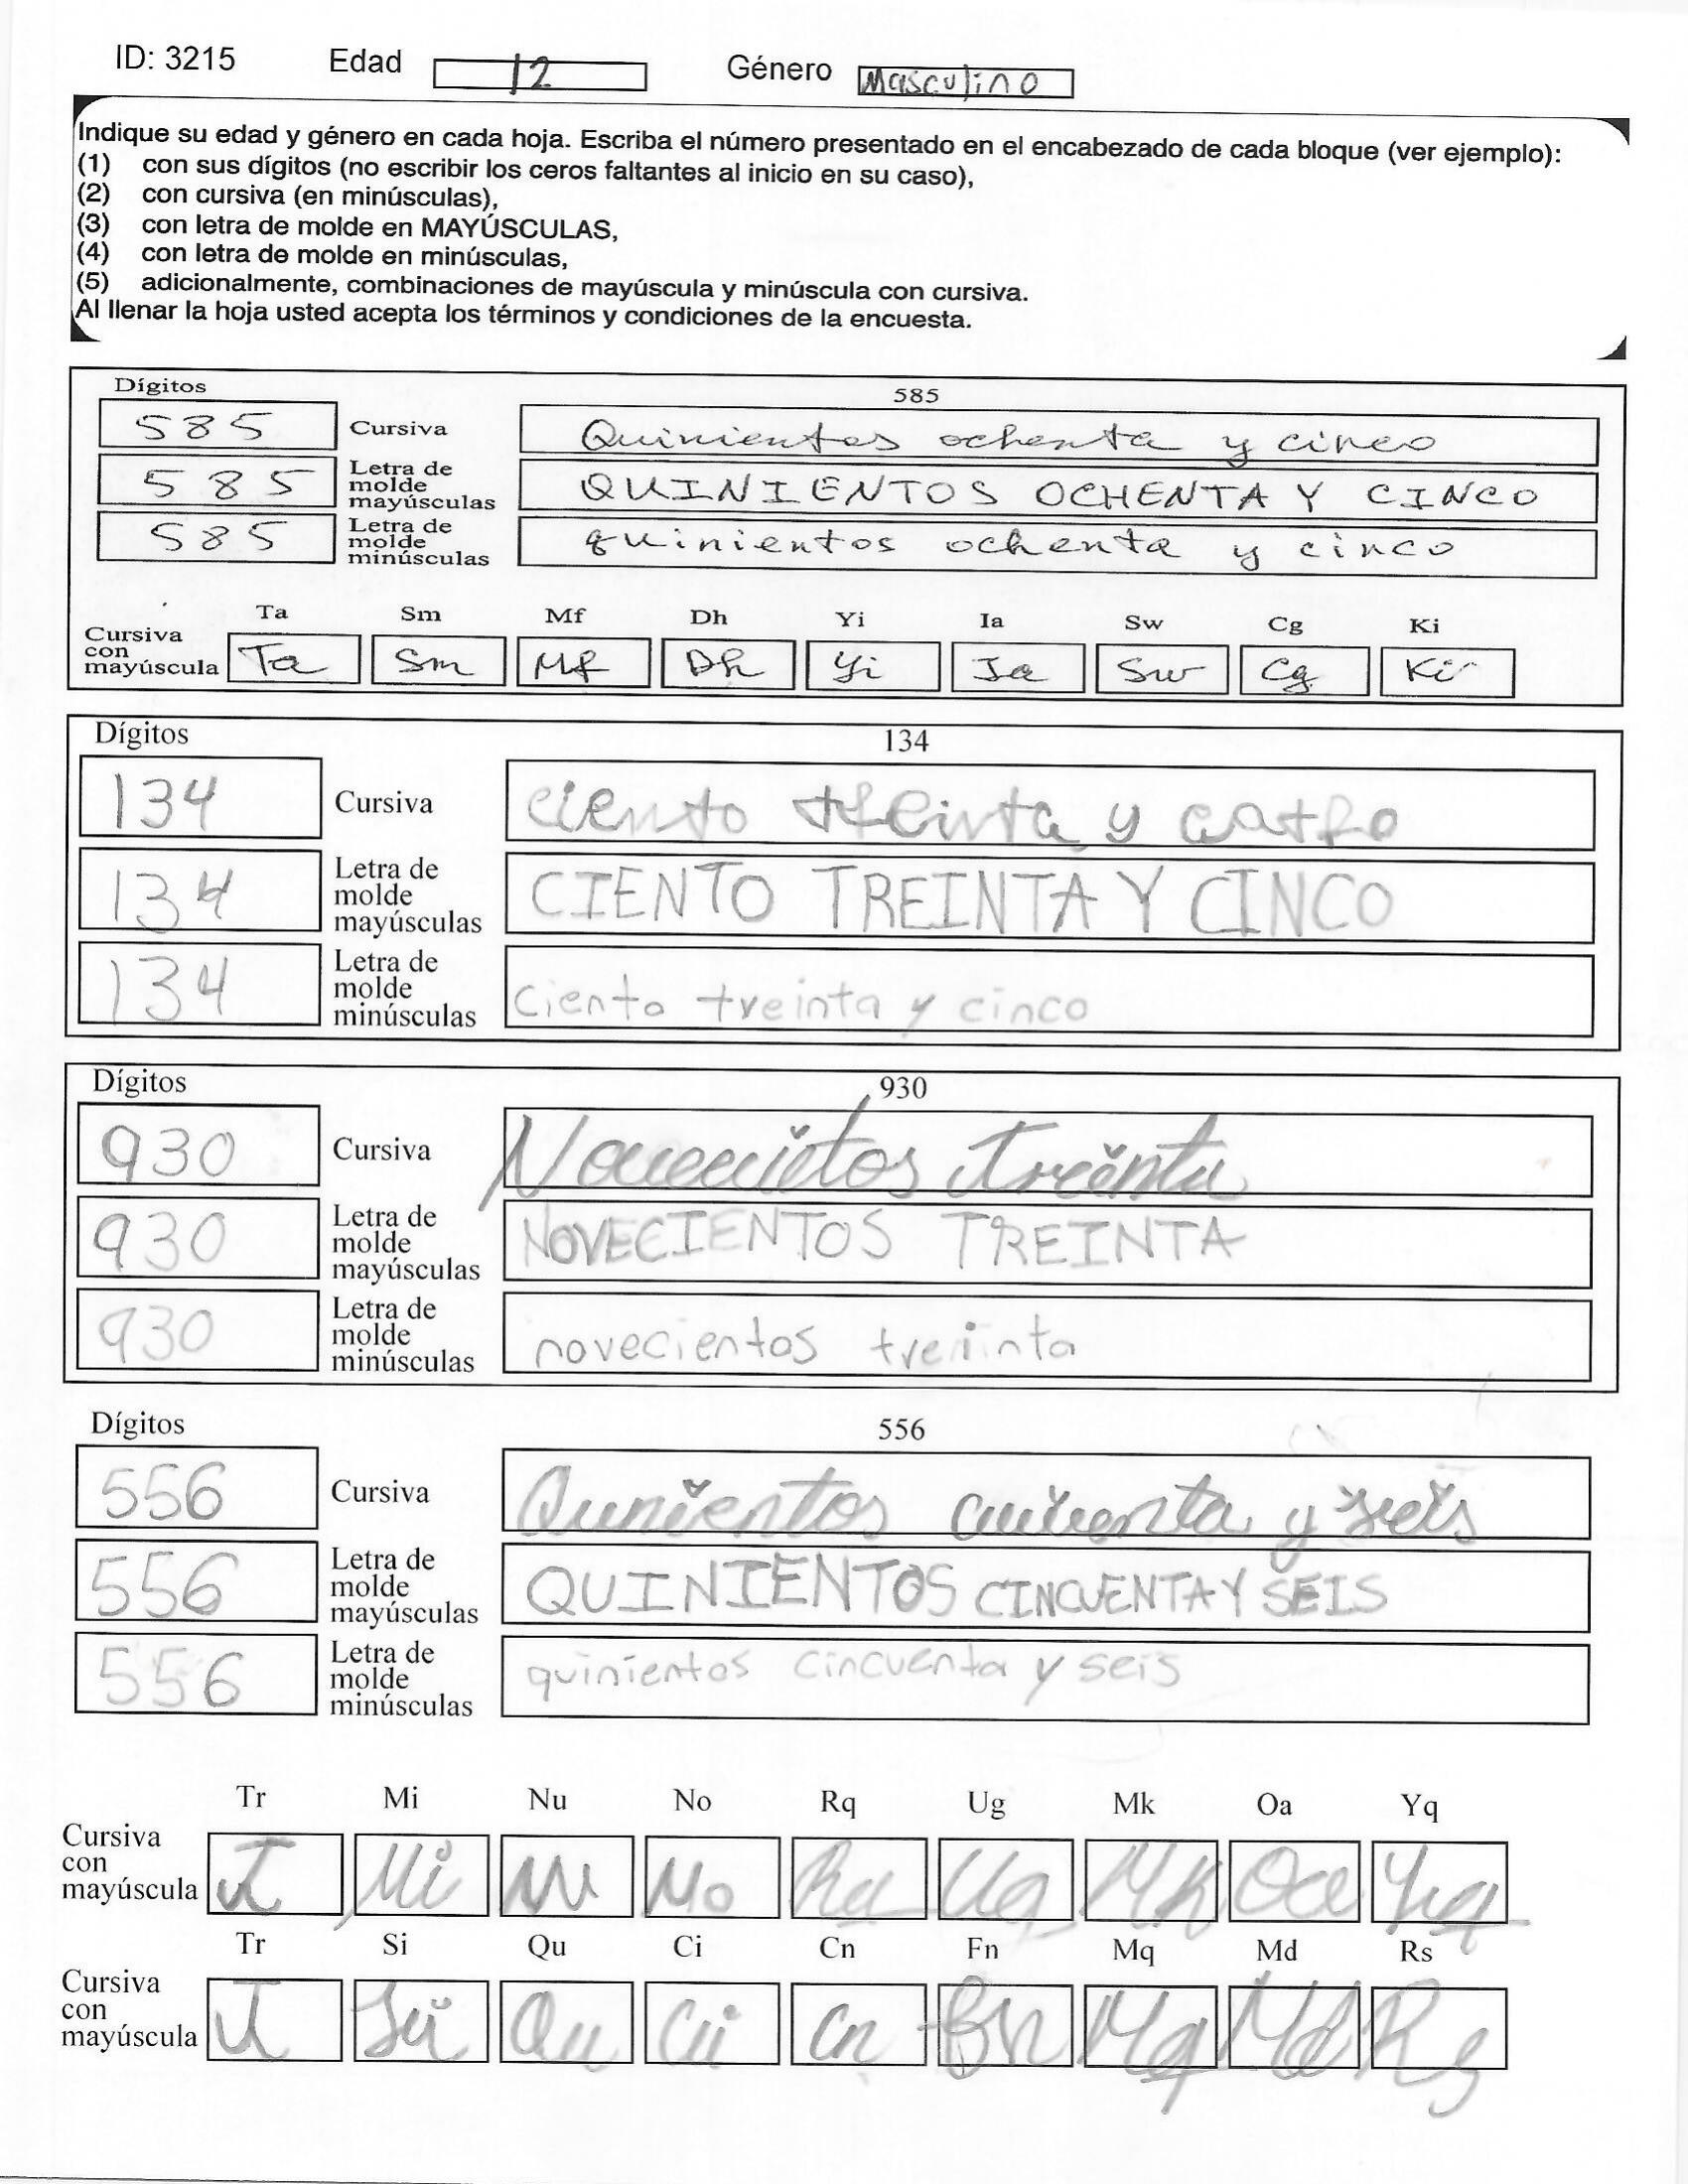 ID: 3215 Edad 12 Género Masculino
Indique su edad y género en cada hoja. Escriba el número presentado en el encabezado de cada bloque (ver ejemplo):
(1) con sus dígitos (no escribir los ceros faltantes al inicio en su caso),
(2) con cursiva (en minúsculas),
(3) con letra de molde en MAYÚSCULAS,
(4) con letra de molde en minúsculas,
(5) adicionalmente, combinaciones de mayúscula y minúscula con cursiva.
Al llenar la hoja usted acepta los términos y condiciones de la encuesta.
Dígitos 585
585 Cursiva Quinientos ochenta y cinco
585 Letra de molde mayúsculas QUINIENTOS OCHENTA Y CINCO
585 Letra de molde minúsculas quinientos ochenta y cinco
Ta Sm Mf Dh Yi Ia Sw Cg Ki
Cursiva con mayúscula Ta Sm Mf Dh Yi Ia Sw Cg Ki
Dígitos 134
134 Cursiva ciento treinta y
134 Letra de molde mayúsculas CIENTO TREINTA Y CINCO
134 Letra de molde minúsculas ciento treinta y cinco
Dígitos 930
930 Cursiva treinta
930 Letra de molde mayúsculas NOVECIENTOS TREINTA
930 Letra de molde minúsculas novecientos treinta
Dígitos 556
556 Cursiva y seis
556 Letra de molde mayúsculas QUINIENTOS CINCUENTA Y SEIS
556 Letra de molde minúsculas quinientos cincuenta y seis
Tr Mi Nu No Rq Ug Mk Oa Yq
Cursiva con mayúscula Mi Nu No Ug Mk Oa Yq
Tr Si Qu Ci Cn Fn Mq Md Rs
Cursiva con mayúscula Si Qu Ci Cn Fn Mq Md Rs